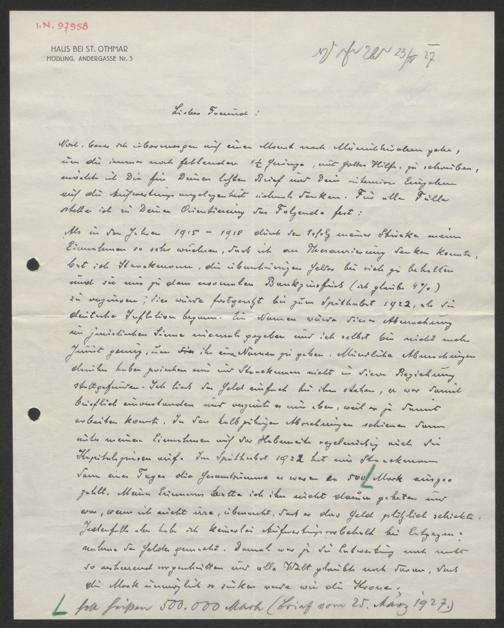 I.N. 97958
HAUS BEI ST. OTHMAR
MÖDLING, ANDERGASSE Nr. 5
27
Lieber Freund:
Noch bevor ich übermorgen auf einen Monat nach gehe,
um die immer noch fehlenden 1½ Gesänge, mit Gottes Hilfe, zu schreiben,
möchte ich Dir für Deinen letzten Brief und Dein intensives Eingehen
auf die Aufwertungsangelegenheit vielmals danken. Für alle Fälle
stelle ich zu Deiner Orientierung das Folgende fest:
Als in den Jahren 1915 – 1918 durch den Erfolg meiner Stücke meine
Einnahmen so sehr wuchsen, dass ich an Thesaurierung denken konnte,
bat ich Staackmann, die überschüssigen Gelder bei sich zu behalten
und sie mir zu dem normalen Bankzinsfuss (ich glaube 4%)
zu verzinsen; dies wurde fortgesetzt bis zum Spätherbst 1922, als die
deutsche Inflation begann. Ein Namen wurde dieser Abmachung
im juristischen Sinne niemals gegeben und ich selbst bin nicht mehr
Jurist genug, um ihr einen Namen zu geben. Mündliche Abmachungen
darüber haben zwischen mir und Staackmann nicht in dieser Beziehung
stattgefunden. Ich liess das Geld einfach bei ihm stehen, er war damit
brieflich einverstanden und verzinste es mir eben, weil er ja damit
arbeiten konnte. In den halbjährigen Abrechnungen schienen dann
unter meinen Einnahmen auf der Habenseite regelmässig auch die
Kapitalszinsen auf. Im Spätherbst 1922 hat mir Staackmann
dann eines Tages die Gesamtsumme es waren ca 500 Mark ausge-
zahlt. Meines Erinnerns hatte ich ihn nicht darum gebeten und
war, wenn ich nicht irre, überrascht, dass er das Geld plötzlich schickte.
Jedenfalls aber hab ich keinerlei Aufwertungsvorbehalt bei Entgegen-
nahme des Geldes gemacht. Damals war ja die Entwertung noch nicht
so vorgeschritten und alle Welt glaubte noch daran, dass
die Mark unmöglich so sinken werde wie die Krone.
soll heißen 500.000 Mark (Brief vom 25. März 1927.)